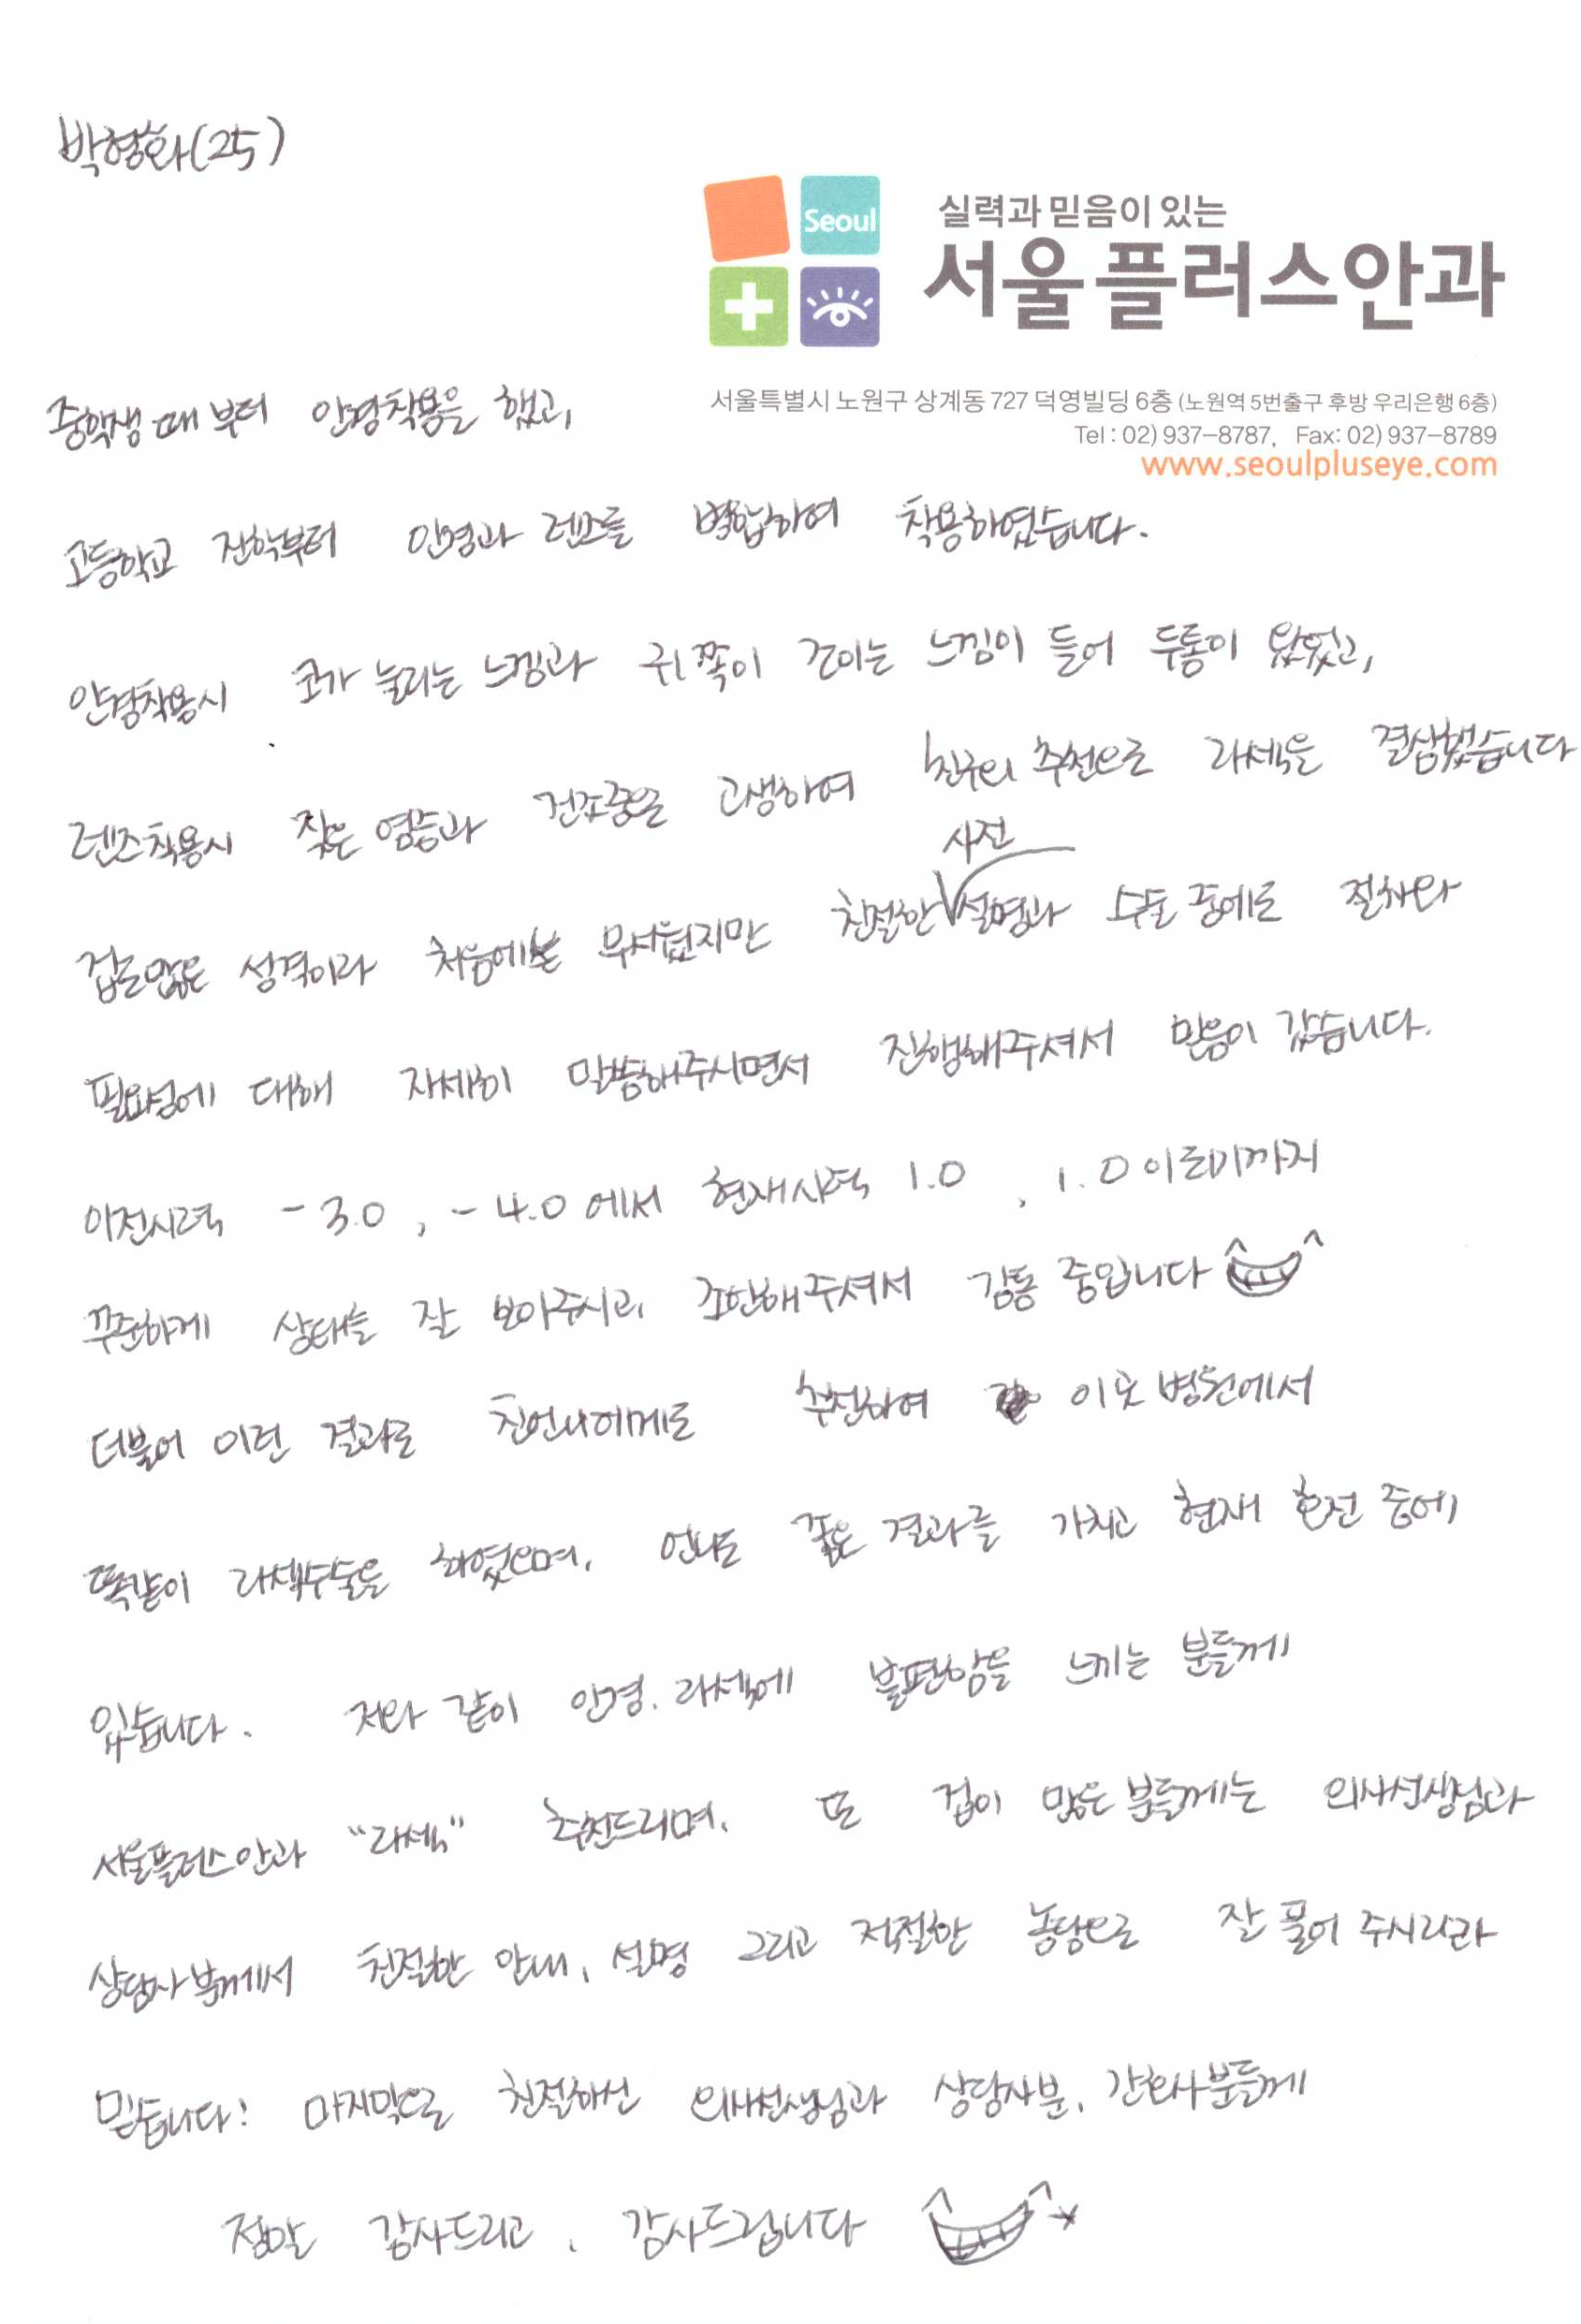 박형화(25)
Seoul
실력과 믿음이 있는
서울플러스안과
서울특별시 노원구 상계동 727 덕영빌딩 6층 (노원역 5번출구 후방 우리은행 6층)
Tel : 02) 937-8787, Fax: 02) 937-8789
www.seoulpluseye.com
중학생 때부터 안경착용을 했고,
고등학교 진학부터 안경과 렌즈를 병합하여 착용하였습니다.
안경착용시 코가 눌리는 느낌과 귀쪽이 조이는 느낌이 들어 두통이 왔었고,
렌즈착용시 잦은 염증과 건조증을 고생하여 친구의 추천으로 라섹을 결심했습니다
겁도많은 성격이라 처음에는 무서웠지만 친절한 사전 설명과 수술 중에도 절차와
필요성에 대해 자세히 말씀해주시면서 진행해주셔서 믿음이 갔습니다.
이전시력 -3.0 , -4.0 에서 현재시력 1.0 , 1.0 이르기까지
꾸준하게 상태를 잘 보아주시고, 조언해주셔서 감동 중입니다
더불어 이런 결과로 친언니에게도 추천하여 이곳 병원에서
똑같이 라섹수술을 하였으며, 언니도 좋은 결과를 가지고 현재 호전 중에
있습니다. 저와 같이 안경, 라섹에 불편함을 느끼는 분들께
서울플러스안과 "라섹" 추천드리며, 또 겁이 많은 분들께는 의사선생님과
상담사분께서 친절한 안내, 설명 그리고 적절한 농담으로 잘 풀어 주시리라
믿습니다! 마지막으로 친절하신 의사선생님과 상담사분, 간호사분들께
정말 감사드리고, 감사드립니다